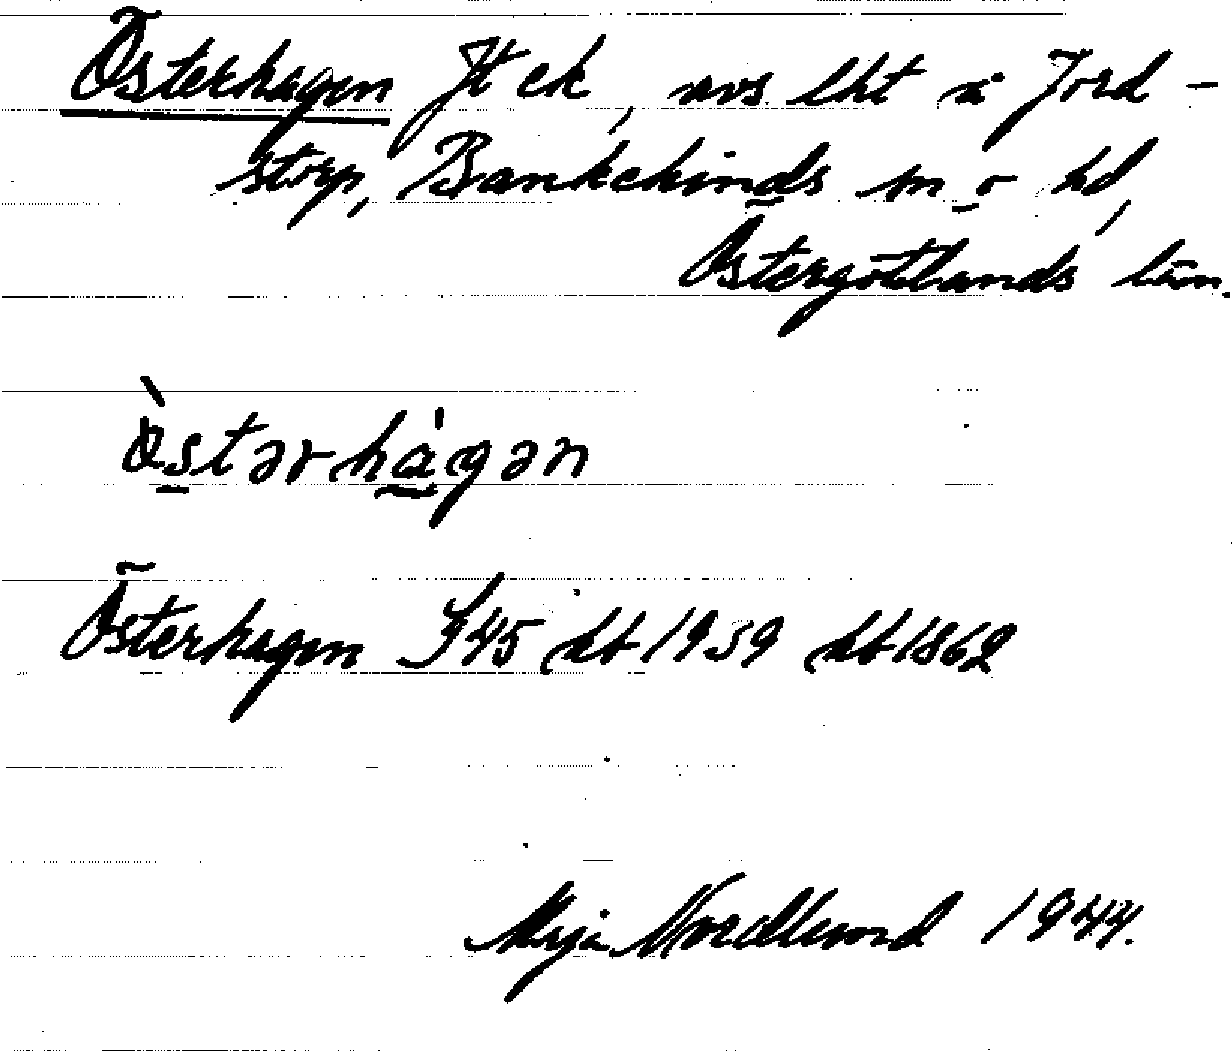 Österhagen Jt ek, avs lht i Jord-
storp, Bankekinds m o hd,
Östergötlands län.
Östərhàgən
Österhagen J45 db 1939 db 1862
Maja Nordlund 1944.